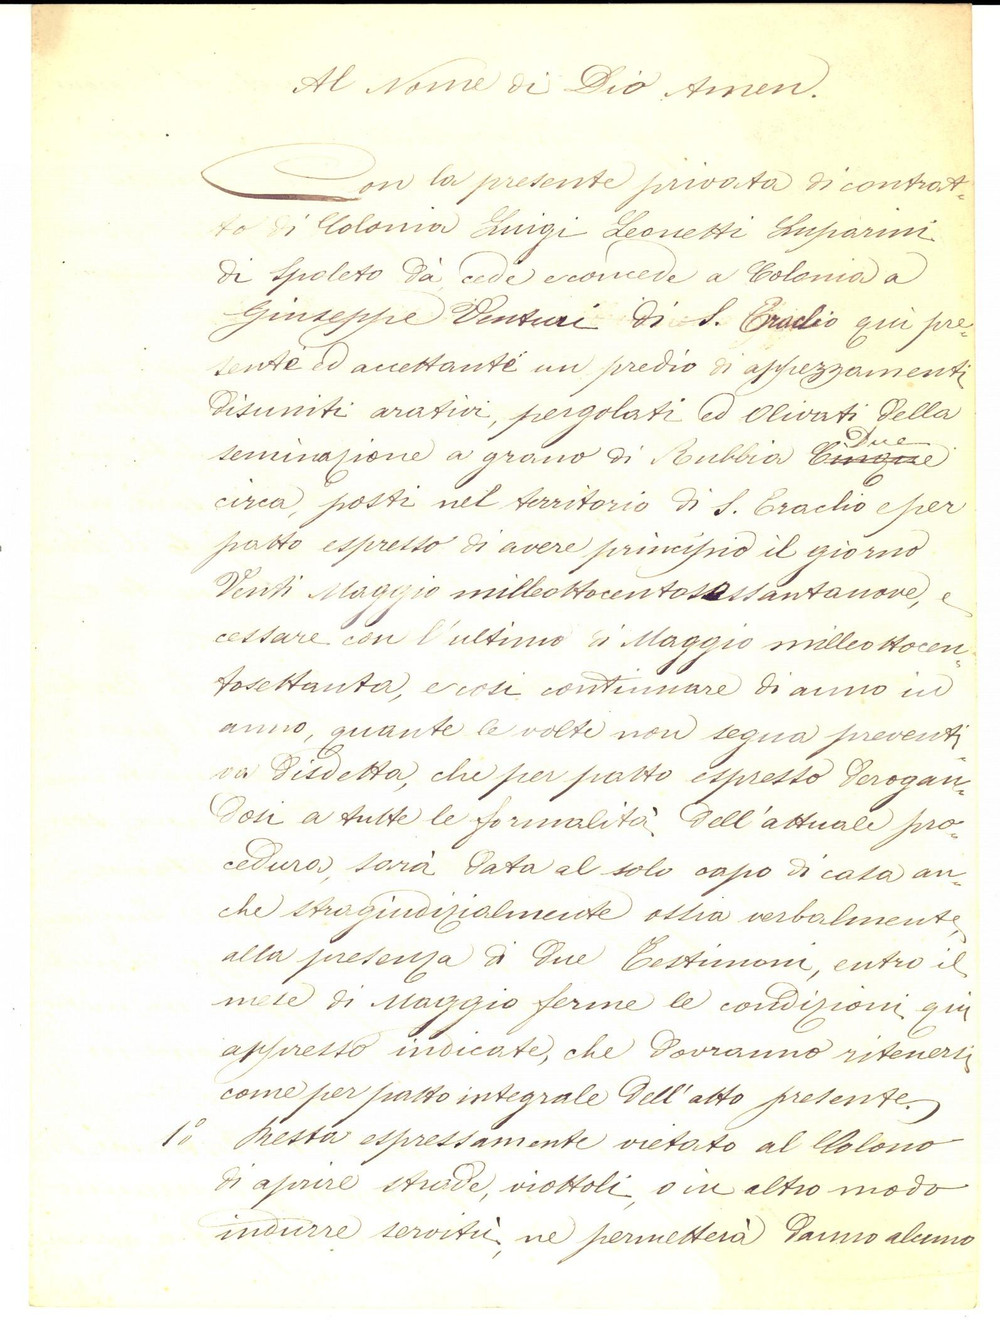 Al Nome di Dio Amen.
Con la presente privata di contrat-
to di Colonia Luigi Leonetti Luparini
di Spoleto dà, cede e concede a Colonia a
Giuseppe Venturi di S. Eraclio qui pre-
sente ed accettante un predio di appezzamenti
disuniti arativi, pergolati ed olivati della
Due
seminazione a grano di Rubbia Cinque
circa, posti nel territorio di S. Eraclio e per
patto espresso di avere principio il giorno
Venti Maggio milleottocentosessantanove, e
cessare con l'ultimo di Maggio milleottocen-
tosettanta, e così continuare di anno in
anno, quante le volte non segua preventi-
va disdetta, che per patto espresso derogan-
dosi a tutte le formalità dell'attuale pro-
cedura, sarà data al solo capo di casa an-
che stragiudizialmente ossia verbalmente,
alla presenza di due Testimoni, entro il
mese di Maggio ferme le condizioni qui
appresso indicate, che dovranno ritenersi
come per patto integrale dell'atto presente.
1º Resta espressamente vietato al Colono
di aprire strade, viottoli, o in altro modo
indurre servitù, ne permetterà danno alcuno